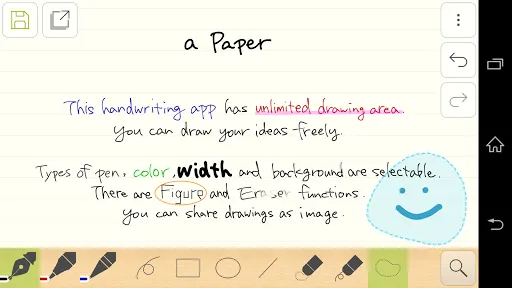 a Paper
This handwriting app has unlimited drawing area.
You can draw your ideas freely.
Types of pen, color, width and background are selectable.
There are Figure and Eraser functions.
You can share drawings as image.